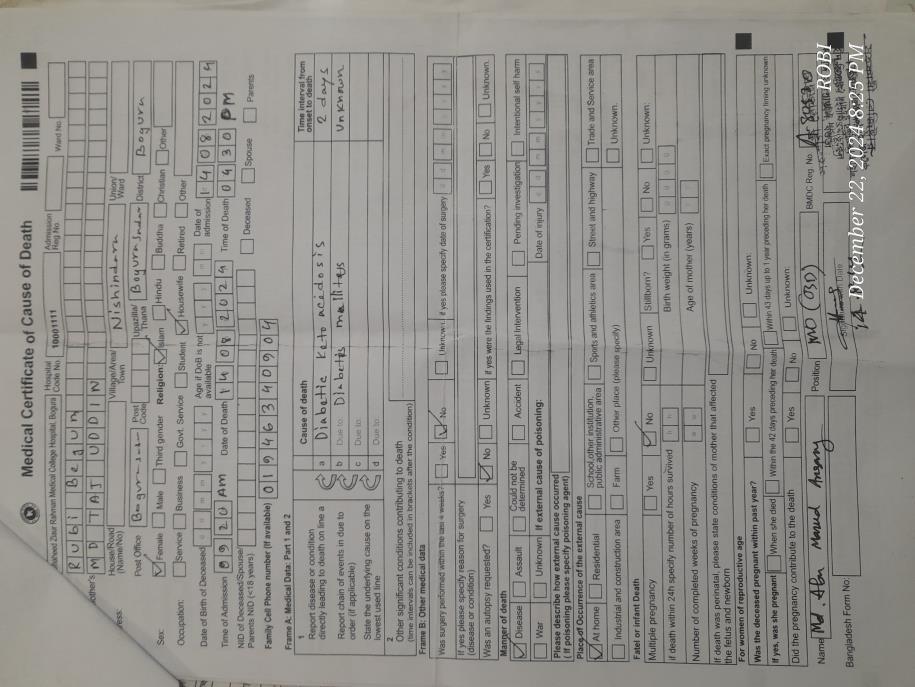 Medical Certificate of Cause of Death
Shaheed Ziaur Rahman Medical College Hospital, Bogura Hospital Code No. 10001111 Admission Reg No. Ward No.
Rubi Begum
Mother's MD AJ UDDIN
House/Road (Name/No) Village/Area/Town Nishindara Union/Ward
Post Office Bogura Post Code Upazilla/Thana Bogura Sadar District Bogura
Sex: Female Male Third gender Religion: Islam Hindu Buddha Christian Other
Occupation: Service Business Govt. Service Student Housewife Retired Other
Date of Birth of Deceased Age if DoB is not available Date of admission 14082024
Time of Admission 0920 AM Date of Death 14082024 Time of Death 0430 PM
NID of Deceased/Spouse/Parents NID (<18 years) Deceased Spouse Parents
Family Cell Phone number (If available) 01946340904
Frame A: Medical Data: Part 1 and 2
1 Cause of death Time interval from onset to death
Report disease or condition directly leading to death on line a a Diabetic keto acedosis 2 days
Report chain of events in due to order (if applicable) b Due to: Diabetes mellites Unknown
c Due to:
State the underlying cause on the lowest used line d Due to:
2 Other significant conditions contributing to death (time intervals can be included in brackets after the condition)
Frame B: Other medical data
Was surgery performed within the last 4 weeks? Yes No Unknown. if yes please specify date of surgery
If yes please specify reason for surgery (disease or condition)
Was an autopsy requested? Yes No Unknown if yes were the findings used in the certification? Yes No Unknown.
Manner of death
Disease Assault Could not be determined Accident Legal Intervention Pending investigation Intentional self harm
War Unknown If external cause of poisoning: Date of injury
Please describe how external cause occurred (If poisoning please specify poisoning agent)
Place of Occurrence of the external cause
At home Residential School, other institution, public administrative area Sports and athletics area Street and highway Trade and Service area
Industrial and construction area Farm Other place (please specify) Unknown.
Fatel or infant Death
Multiple pregnancy Yes No Unknown Stillborn? Yes No Unknown:
if death within 24h specify number of hours survived Birth weight (in grams)
Number of completed weeks of pregnancy Age of mother (years)
If death was perinatal, please state conditions of mother that affected the fetus and newborn
For women of reproductive age
Was the deceased pregnant within past year? Yes No Unknown.
If yes, was she pregnant When she died Within the 42 days preceding her death Within 43 days up to 1 year preceding her death Exact pregnancy timing unknown
Did the pregnancy contribute to the death Yes No Unknown:
Name Md. Abu Masud Ansary Position MO (OSD) BMDC Reg. No.
Bangladesh Form No:
ROBI
14 December 22, 2024 8:25 PM